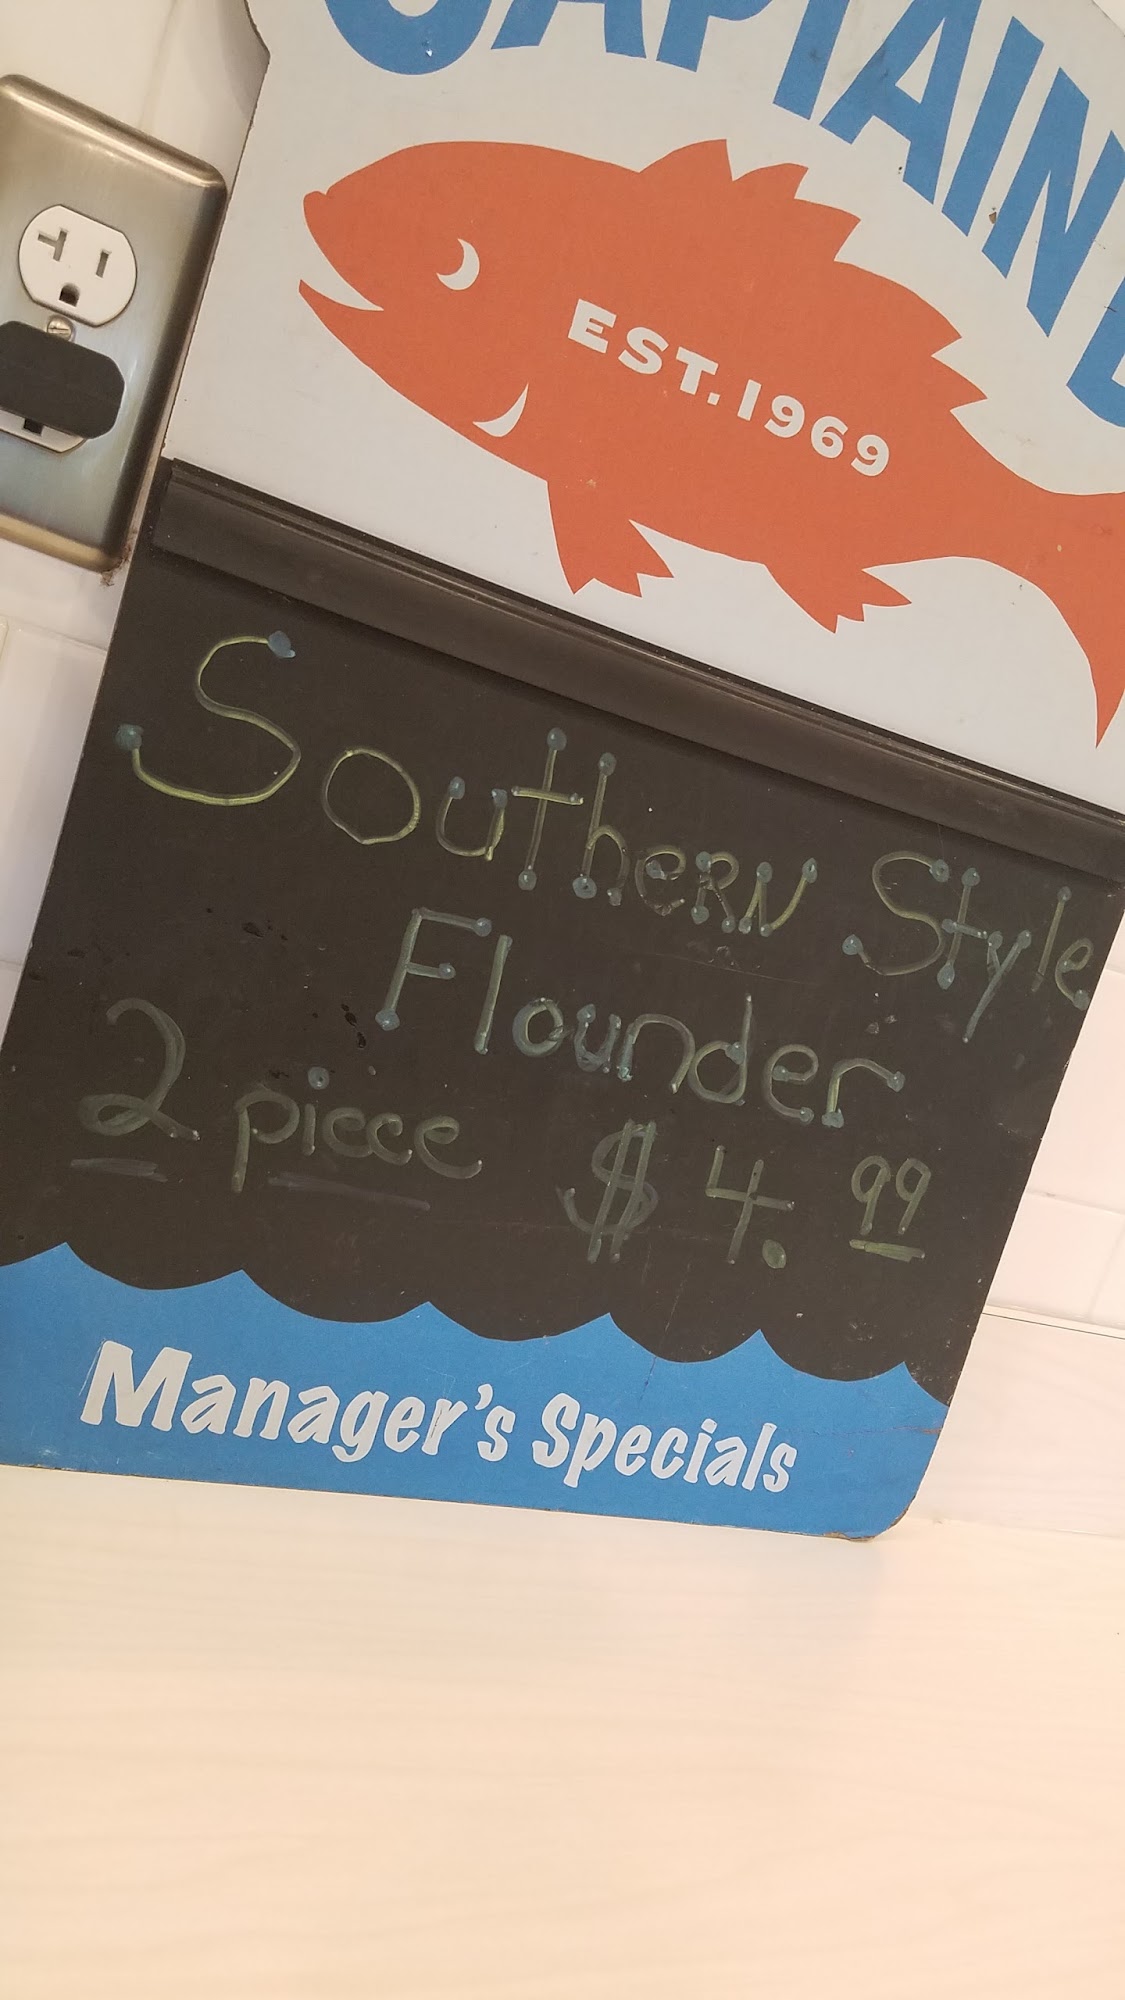 CAPTAIN
EST. 1969
Southern Style
Flounder
2 piece $4.99
Manager's Specials